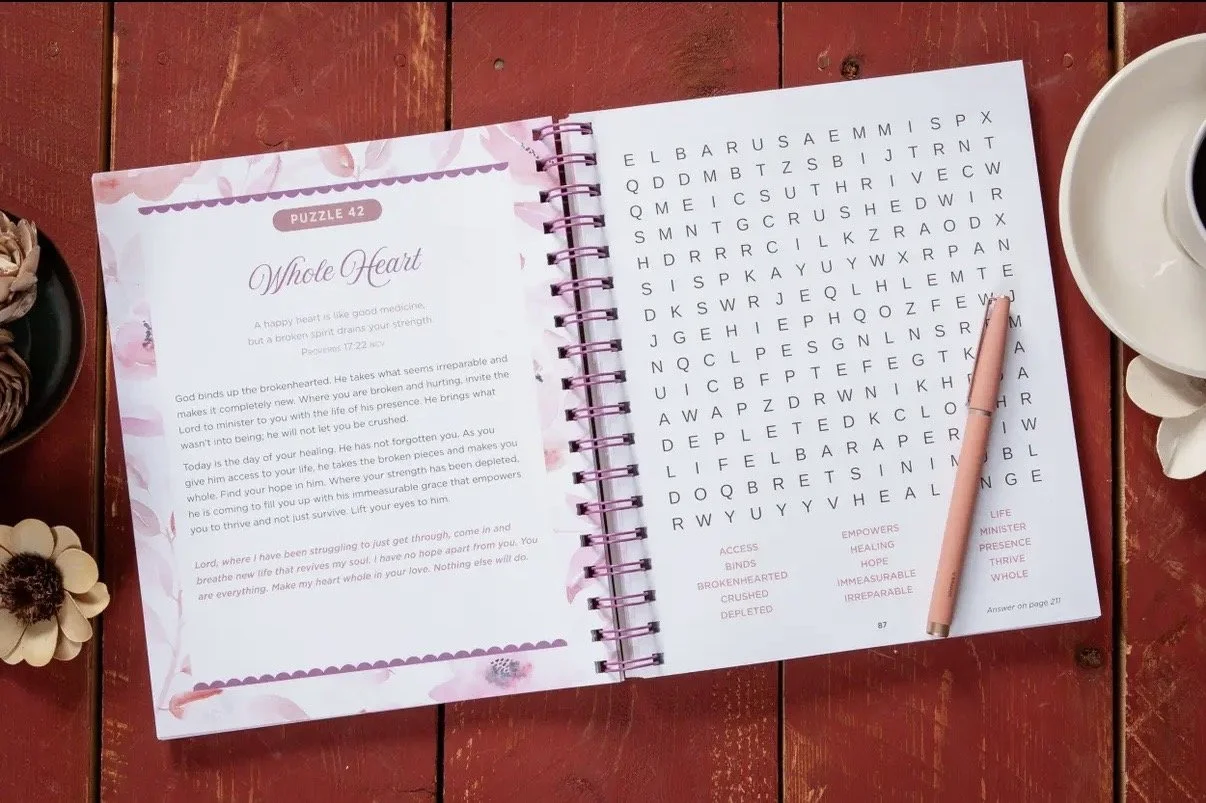 PUZZLE 42
Whole Heart
A happy heart is like good medicine,
but a broken spirit drains your strength.
Proverbs 17:22 NCV
God binds up the brokenhearted. He takes what seems irreparable and
makes it completely new. Where you are broken and hurting, invite the
Lord to minister to you with the life of his presence. He brings what
wasn't into being; he will not let you be crushed.
Today is the day of your healing. He has not forgotten you. As you
give him access to your life, he takes the broken pieces and makes you
whole. Find your hope in him. Where your strength has been depleted,
he is coming to fill you up with his immeasurable grace that empowers
you to thrive and not just survive. Lift your eyes to him.
Lord, where I have been struggling to just get through, come in and
breathe new life that revives my soul. I have no hope apart from you. You
are everything. Make my heart whole in your love. Nothing else will do.
E L B A R U S A E M M I S P X
Q D D M B T Z S B I J T R N T
Q M E I C S U T H R I V E C W
S M N T G C R U S H E D W I R
H D R R R C I L K Z R A O D X
S I S P K A Y U Y W X R P A N
D K S W R J E Q L H L E M T E
J G E H I E P H Q O Z F E W J
N Q C L P E S G N L N S R M
U I C B F P T E F E G T K A
A W A P Z D R W N I K H A
D E P L E T E D K C L O H R
L I F E L B A R A P E R I W
D O Q B R E T S I N I M J B L
R W Y U Y Y V H E A L N G E
ACCESS
BINDS
BROKENHEARTED
CRUSHED
DEPLETED
EMPOWERS
HEALING
HOPE
IMMEASURABLE
IRREPARABLE
LIFE
MINISTER
PRESENCE
THRIVE
WHOLE
87
Answer on page 211